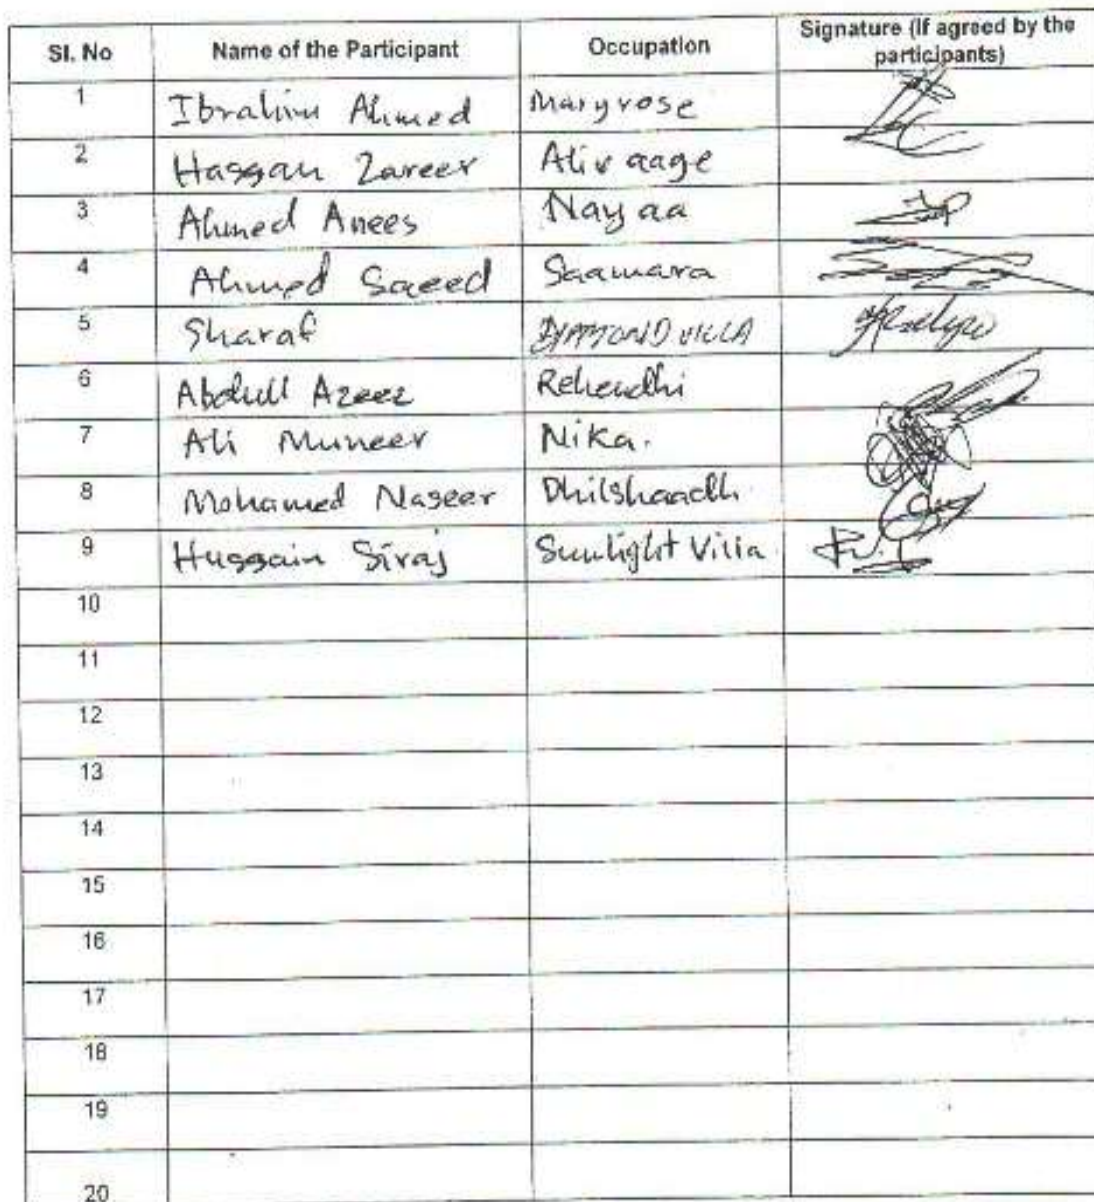 Sl. No Name of the Participant Occupation Signature (If agreed by the participants)
1 Ibrahim Ahmed Maryrose
2 Hassan Zareer Alivaage
3 Ahmed Anees Nayaa
4 Ahmed Saeed Saamara
5 Sharaf DIAMOND VILLA
6 Abdull Azeez Rehendhi
7 Ali Muneer Nika.
8 Mohamed Naseer Dhilshaadh
9 Hussain Siraj Sunlight Villa
10
11
12
13
14
15
16
17
18
19
20